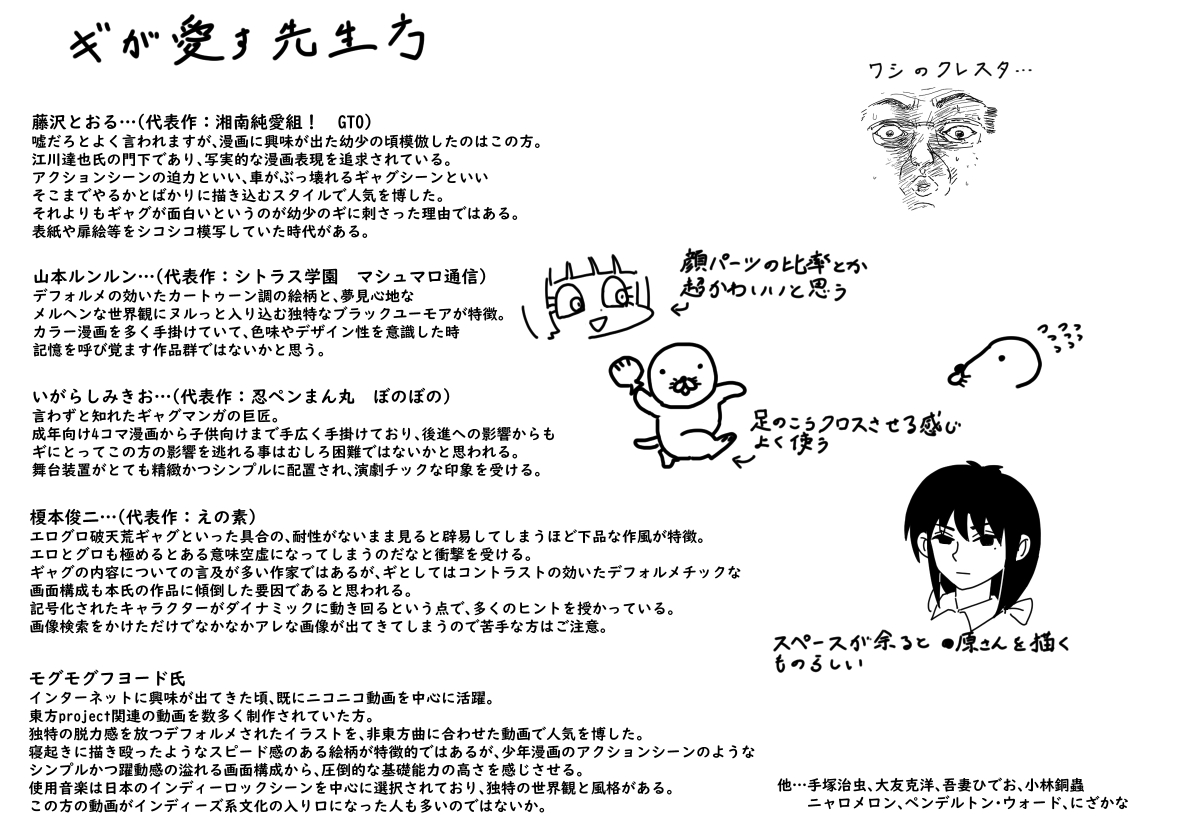 ギが愛す先生方
ワシのクレスタ…
藤沢とおる…(代表作：湘南純愛組！　GTO)
嘘だろとよく言われますが、漫画に興味が出た幼少の頃模倣したのはこの方。
江川達也氏の門下であり、写実的な漫画表現を追求されている。
アクションシーンの迫力といい、車がぶっ壊れるギャグシーンといい
そこまでやるかとばかりに描き込むスタイルで人気を博した。
それよりもギャグが面白いというのが幼少のギに刺さった理由ではある。
表紙や扉絵等をシコシコ模写していた時代がある。
山本ルンルン…(代表作：シトラス学園　マシュマロ通信)
デフォルメの効いたカートゥーン調の絵柄と、夢見心地な
メルヘンな世界観にヌルっと入り込む独特なブラックユーモアが特徴。
カラー漫画を多く手掛けていて、色味やデザイン性を意識した時
記憶を呼び覚ます作品群ではないかと思う。
顔パーツの比率とか
超かわいいと思う
いがらしみきお…(代表作：忍ペンまん丸　ぼのぼの)
言わずと知れたギャグマンガの巨匠。
成年向け4コマ漫画から子供向けまで手広く手掛けており、後進への影響からも
ギにとってこの方の影響を逃れる事はむしろ困難ではないかと思われる。
舞台装置がとても精緻かつシンプルに配置され、演劇チックな印象を受ける。
足のこうクロスさせる感じ
よく使う
榎本俊二…(代表作：えの素)
エログロ破天荒ギャグといった具合の、耐性がないまま見ると辟易してしまうほど下品な作風が特徴。
エロとグロも極めるとある意味空虚になってしまうのだなと衝撃を受ける。
ギャグの内容についての言及が多い作家ではあるが、ギとしてはコントラストの効いたデフォルメチックな
画面構成も本氏の作品に傾倒した要因であると思われる。
記号化されたキャラクターがダイナミックに動き回るという点で、多くのヒントを授かっている。
画像検索をかけただけでなかなかアレな画像が出てきてしまうので苦手な方はご注意。
スペースが余ると●原さんを描く
ものらしい
モグモグフヨード氏
インターネットに興味が出てきた頃、既にニコニコ動画を中心に活躍。
東方project関連の動画を数多く制作されていた方。
独特の脱力感を放つデフォルメされたイラストを、非東方曲に合わせた動画で人気を博した。
寝起きに描き殴ったようなスピード感のある絵柄が特徴的ではあるが、少年漫画のアクションシーンのような
シンプルかつ躍動感の溢れる画面構成から、圧倒的な基礎能力の高さを感じさせる。
使用音楽は日本のインディーロックシーンを中心に選択されており、独特の世界観と風格がある。
この方の動画がインディーズ系文化の入り口になった人も多いのではないか。
他…手塚治虫、大友克洋、吾妻ひでお、小林銅蟲
ニャロメロン、ペンデルトン・ウォード、にざかな